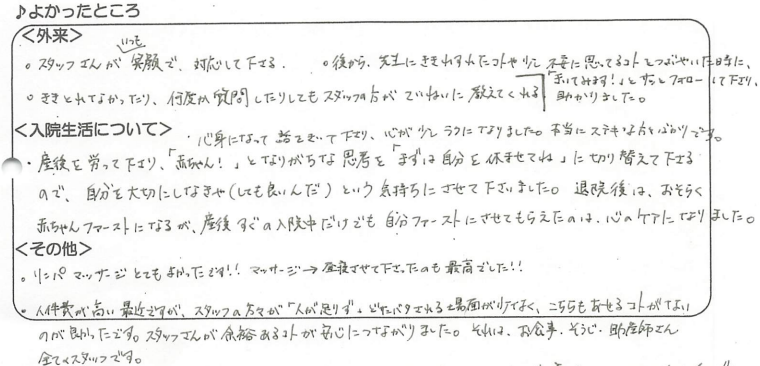 ♪よかったところ
<外来>
。スタッフさんがいつも笑顔で、対応して下さる。 。後から、先生にききわすれたコトや少し不安に思ってるコトとつぶやいた時に、
。ききとれてなかったり、何度か質問したりしてもスタッフの方がていねいに教えてくれる 「きいてみます!」とずっとフォローして下さり、助かりました。
<入院生活について>
・心身になって話をきいて下さり、心が少しラクになりました。本当にステキな方とばかりです。
・産後を労って下さり、「赤ちゃん!」となりがちな思考を「まずは自分を休ませてね」に切り替えて下さる
ので、自分を大切にしなきゃ(しても良いんだ)という気持ちにさせて下さいました。退院後は、おそらく
赤ちゃんファーストになるが、産後すぐの入院中だけでも自分ファーストにさせてもらえたのは、心のケアになりました。
<その他>
。リンパマッサージとてもよかったです!! マッサージ→昼寝させて下さったのも最高でした!!
・人件費が高い最近ですが、スタッフの方々が「人が足りず」どたバタされる場面が少なく、こちらもあせるコトがない
のが良かったです。スタッフさんが余裕あるコトが安心につながりました。それは、お食事・そうじ・助産師さん
全てのスタッフです。